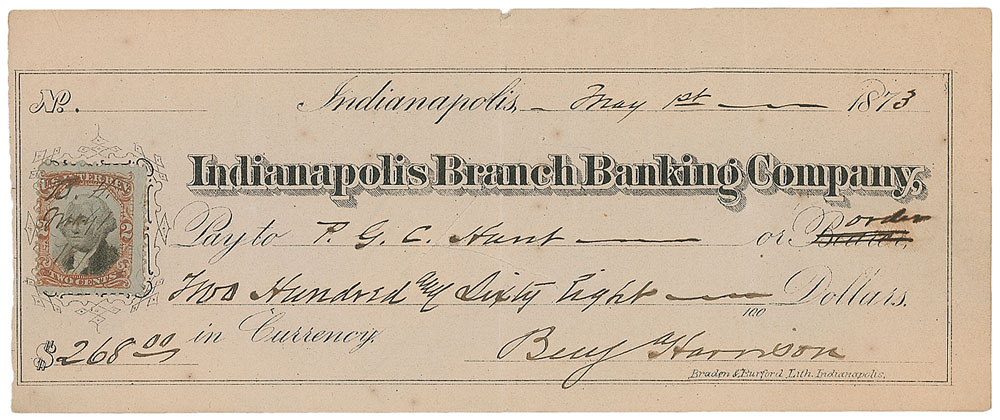 No. Indianapolis, May 1st 1873
Indianapolis Branch Banking Company,
Pay to P. G. C. Hunt or Bearer, order
Two Hundred and Sixty Eight Dollars.
100
$268.00 in Currency.
Benj Harrison
Braden & Burford, Lith. Indianapolis.
TWO CENTS